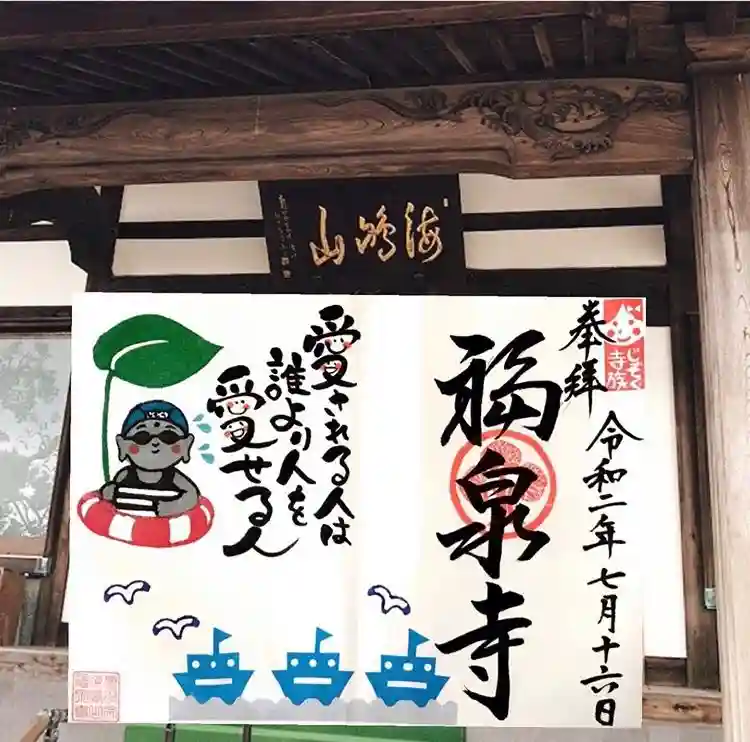 海鳴山
奉拝
じぞく
寺族
令和二年七月十六日
福泉寺
愛される人は
誰より人を
愛せる人